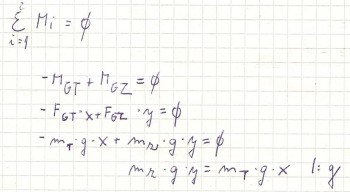 i
Σ Mi = ϕ
i=1
-M_GT + M_GZ = ϕ
-F_GT·x + F_GZ·y = ϕ
-m_T·g·x + m_Z·g·y = ϕ
m_Z·g·y = m_T·g·x |:g